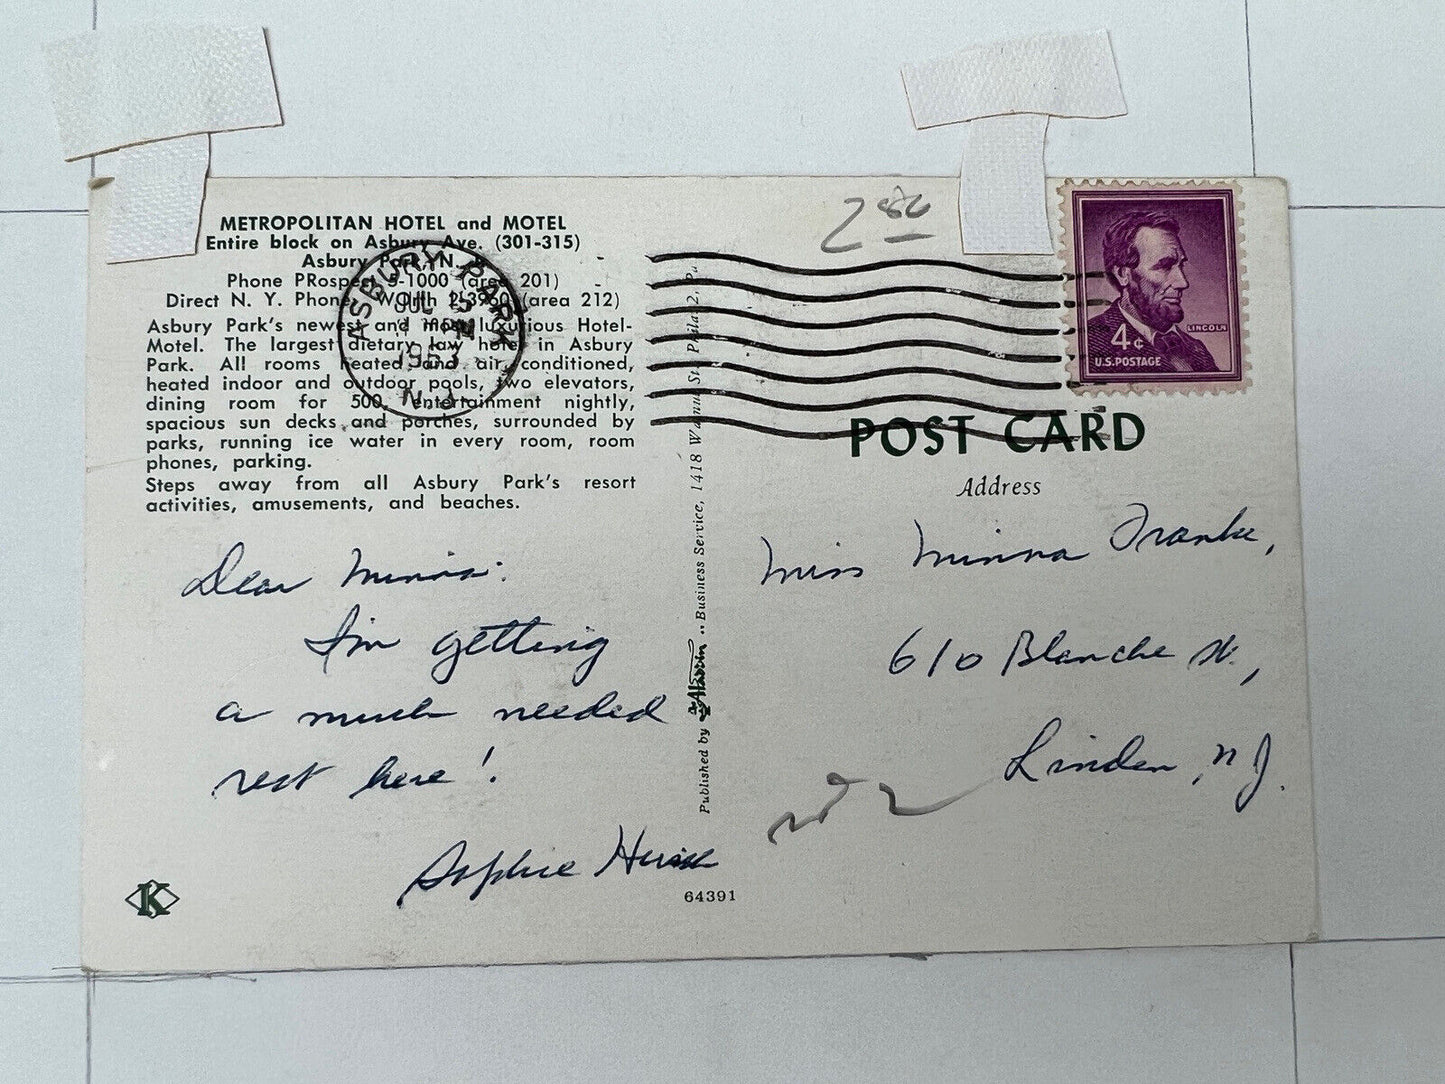 METROPOLITAN HOTEL and MOTEL
Entire block on Asbury Ave. (301-315)
Asbury Park, N. J.
Phone PRospect 5-1000 (area 201)
Direct N. Y. Phone, WOrth 2-3960 (area 212)
Asbury Park's newest and most luxurious Hotel-
Motel. The largest dietary law hotel in Asbury
Park. All rooms heated and air conditioned,
heated indoor and outdoor pools, two elevators,
dining room for 500, entertainment nightly,
spacious sun decks and porches, surrounded by
parks, running ice water in every room, room
phones, parking.
Steps away from all Asbury Park's resort
activities, amusements, and beaches.
ASBURY PARK
JUL 15
PM
1963
N.J.
Dear Minna:
I'm getting
a much needed
rest here!
Sophie
K
Published by Aladdin .. Business Service, 1418 Walnut St., Phila. 2, Pa.
64391
286
4¢
LINCOLN
U.S. POSTAGE
POST CARD
Address
Miss Minna Franke,
610 Blanche St.,
Linden, N.J.